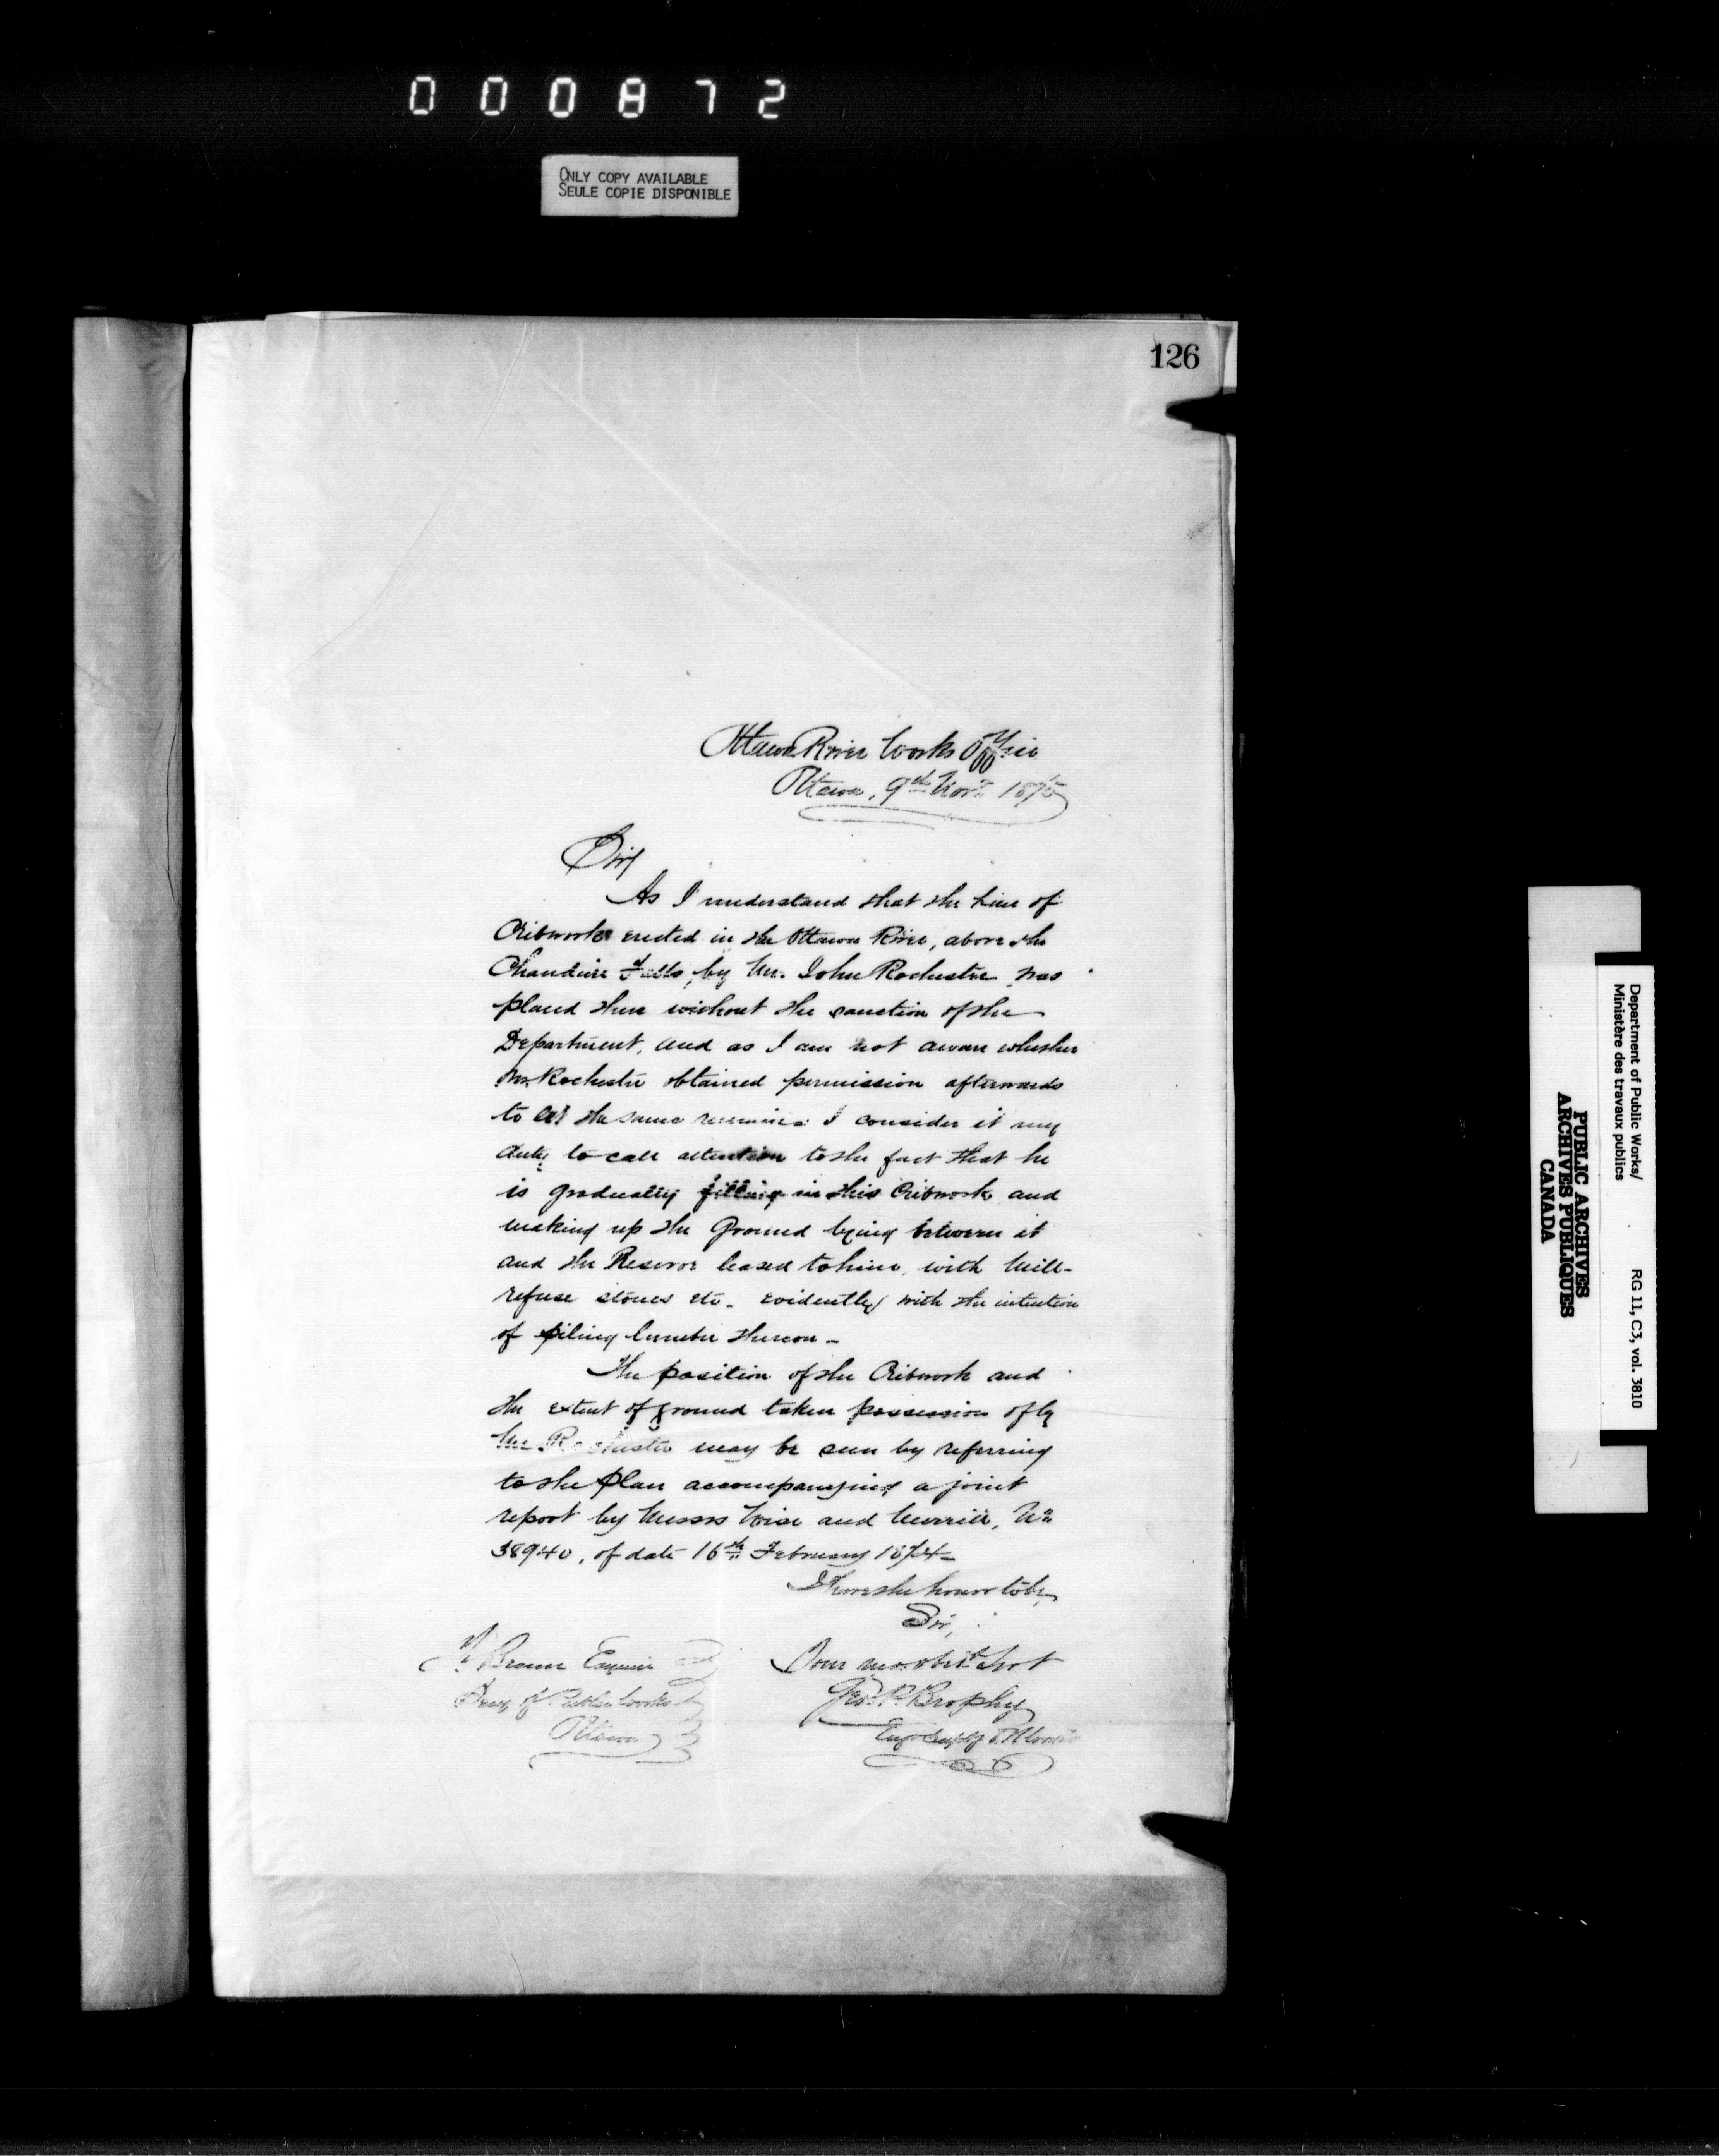 000872
ONLY COPY AVAILABLE
SEULE COPIE DISPONIBLE
126
Ottawa River Works Office
Ottawa, 9th Novr. 1875
Sir,
As I understand that the line of
Cribwork erected in the Ottawa River, above the
Chaudiere Falls, by Mr. John Rochester was
placed there without the sanction of the
Department, and as I am not aware whether
Mr. Rochester obtained permission afterwards
to let the same remain: I consider it my
duty to call attention to the fact that he
is gradually filling in this Cribwork, and
making up the Ground lying between it
and the Reserve leased to him, with Mill-
refuse stones etc. evidently with the intention
of piling lumber thereon -
The position of the Cribwork and
the extent of ground taken possession of by
Mr Rochester may be seen by referring
to the Plan accompanying a joint
report by Messrs Wise and Merrill, No.
38940, of date 16th February 1874 -
I have the honor to be,
Sir,
Your mo. obt. Svt
Geo. P. Brophy
Engr Supt O. R. Works
F. Braun Esquire
Secy of Public Works
Ottawa
Department of Public Works/
Ministère des travaux publics
RG 11, C3, vol. 3810
PUBLIC ARCHIVES
ARCHIVES PUBLIQUES
CANADA